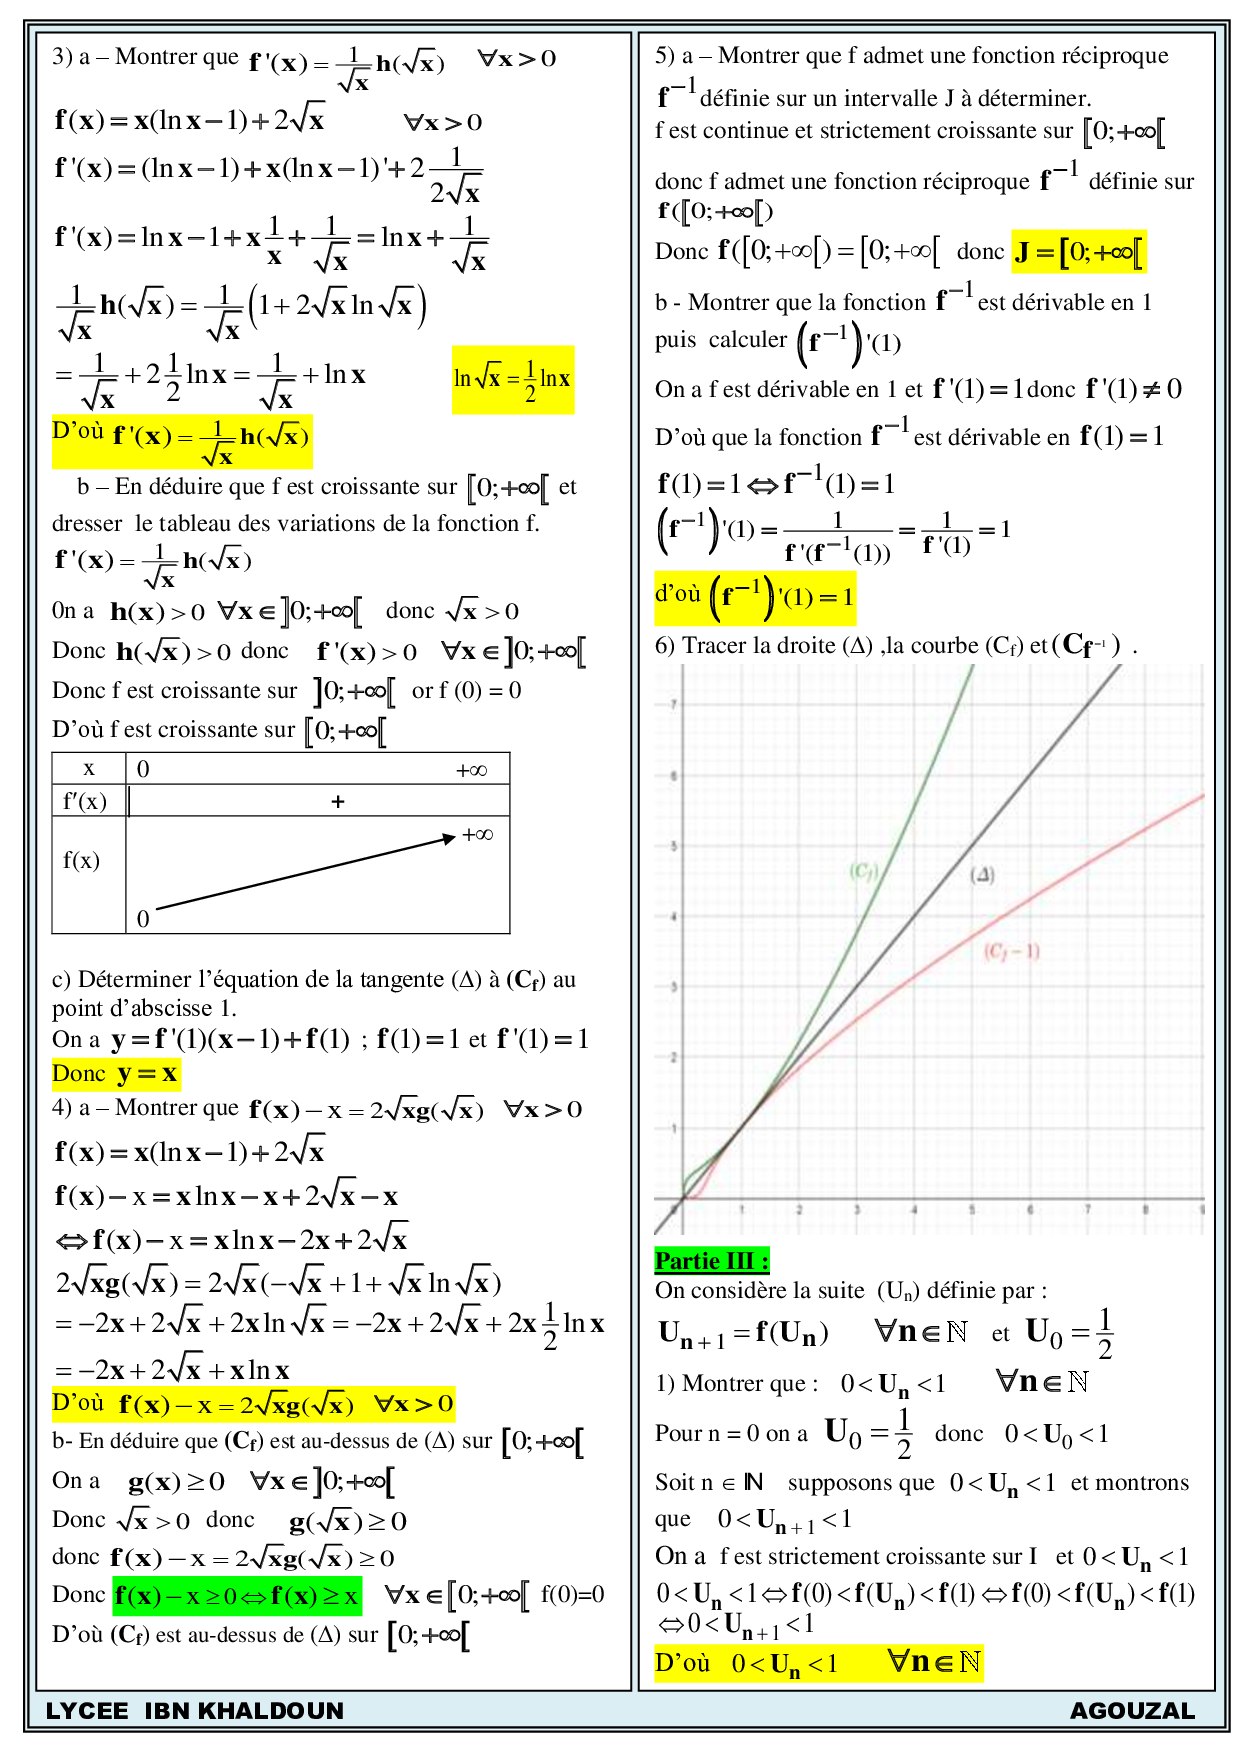 3) a – Montrer que f '(x) = 1/√x h(√x) ∀x > 0
f(x) = x(ln x − 1) + 2√x ∀x > 0
f '(x) = (ln x − 1) + x(ln x − 1)' + 2 1/(2√x)
f '(x) = ln x − 1 + x 1/x + 1/√x = ln x + 1/√x
1/√x h(√x) = 1/√x (1 + 2√x ln √x)
= 1/√x + 2 1/2 ln x = 1/√x + ln x ln √x = 1/2 ln x
D'où f '(x) = 1/√x h(√x)
b – En déduire que f est croissante sur [0;+∞[ et
dresser le tableau des variations de la fonction f.
f '(x) = 1/√x h(√x)
0n a h(x) > 0 ∀x ∈ ]0;+∞[ donc √x > 0
Donc h(√x) > 0 donc f '(x) > 0 ∀x ∈ ]0;+∞[
Donc f est croissante sur ]0;+∞[ or f (0) = 0
D'où f est croissante sur [0;+∞[
x 0 +∞
f′(x) +
f(x) 0 +∞
c) Déterminer l'équation de la tangente (Δ) à (Cf) au
point d'abscisse 1.
On a y = f '(1)(x − 1) + f(1) ; f(1) = 1 et f '(1) = 1
Donc y = x
4) a – Montrer que f(x) − x = 2√xg(√x) ∀x > 0
f(x) = x(ln x − 1) + 2√x
f(x) − x = x ln x − x + 2√x − x
⇔ f(x) − x = x ln x − 2x + 2√x
2√xg(√x) = 2√x(−√x + 1 + √x ln √x)
= −2x + 2√x + 2x ln √x = −2x + 2√x + 2x 1/2 ln x
= −2x + 2√x + x ln x
D'où f(x) − x = 2√xg(√x) ∀x > 0
b- En déduire que (Cf) est au-dessus de (Δ) sur [0;+∞[
On a g(x) ≥ 0 ∀x ∈ ]0;+∞[
Donc √x > 0 donc g(√x) ≥ 0
donc f(x) − x = 2√xg(√x) ≥ 0
Donc f(x) − x ≥ 0 ⇔ f(x) ≥ x ∀x ∈ [0;+∞[ f(0)=0
D'où (Cf) est au-dessus de (Δ) sur [0;+∞[
5) a – Montrer que f admet une fonction réciproque
f⁻¹ définie sur un intervalle J à déterminer.
f est continue et strictement croissante sur [0;+∞[
donc f admet une fonction réciproque f⁻¹ définie sur
f([0;+∞[)
Donc f([0;+∞[) = [0;+∞[ donc J = [0;+∞[
b - Montrer que la fonction f⁻¹ est dérivable en 1
puis calculer (f⁻¹)'(1)
On a f est dérivable en 1 et f '(1) = 1 donc f '(1) ≠ 0
D'où que la fonction f⁻¹ est dérivable en f(1) = 1
f(1) = 1 ⇔ f⁻¹(1) = 1
(f⁻¹)'(1) = 1/f '(f⁻¹(1)) = 1/f '(1) = 1
d'où (f⁻¹)'(1) = 1
6) Tracer la droite (Δ) ,la courbe (Cf) et (Cf⁻¹) .
7
6
5
(Cf) (Δ)
4
(Cf − 1)
3
2
1
0 1 2 3 4 5 6 7 8 9
Partie III :
On considère la suite (Un) définie par :
Uₙ₊₁ = f(Uₙ) ∀n ∈ ℕ et U₀ = 1/2
1) Montrer que : 0 < Uₙ < 1 ∀n ∈ ℕ
Pour n = 0 on a U₀ = 1/2 donc 0 < U₀ < 1
Soit n ∈ ℕ supposons que 0 < Uₙ < 1 et montrons
que 0 < Uₙ₊₁ < 1
On a f est strictement croissante sur I et 0 < Uₙ < 1
0 < Uₙ < 1 ⇔ f(0) < f(Uₙ) < f(1) ⇔ f(0) < f(Uₙ) < f(1)
⇔ 0 < Uₙ₊₁ < 1
D'où 0 < Uₙ < 1 ∀n ∈ ℕ
LYCEE IBN KHALDOUN AGOUZAL